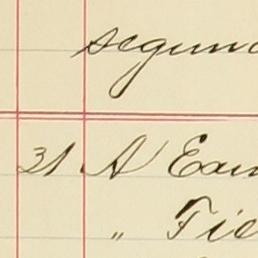 segun
31 A Ea
" Fie